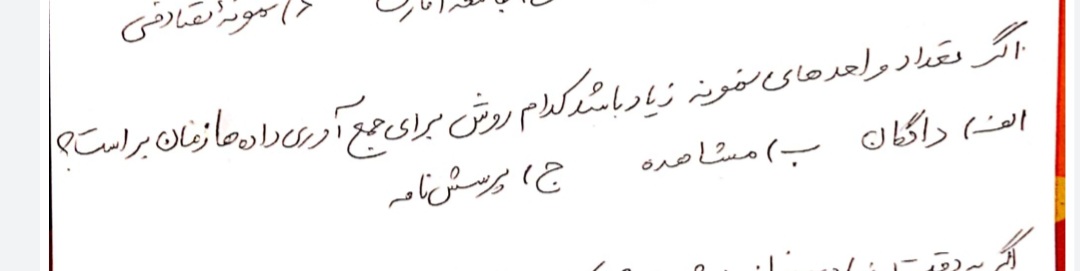 د) نمونهٔ تصادفی
اگر تعداد واحدهای نمونه زیاد باشد کدام روش برای جمع آوری داده‌ها زمان بر است؟
الف) دادگان ب) مشاهده ج) پرسش‌نامه
اگر به دقت